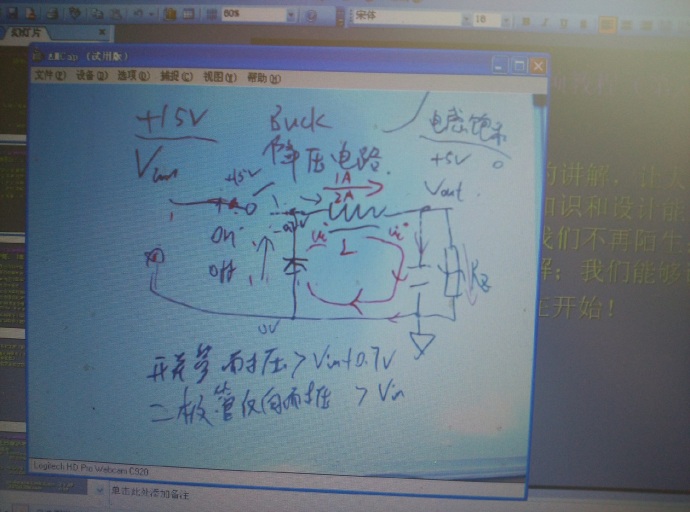 60%
宋体
18
幻灯片
Cap (试用版)
文件(F) 设备(D) 选项(O) 捕捉(C) 视图(V) 帮助(H)
+15V
Buck
电感饱和
Vin
降压电路
+5V
+15V
1A
Vout
2A
On
off
L
0V
开关管耐压>Vin+0.7V
二极管反向耐压 >Vin
的讲解，让大
知识和设计能
我们不再陌生
解；我们能够
正开始！
Logitech HD Pro Webcam C920
单击此处添加备注